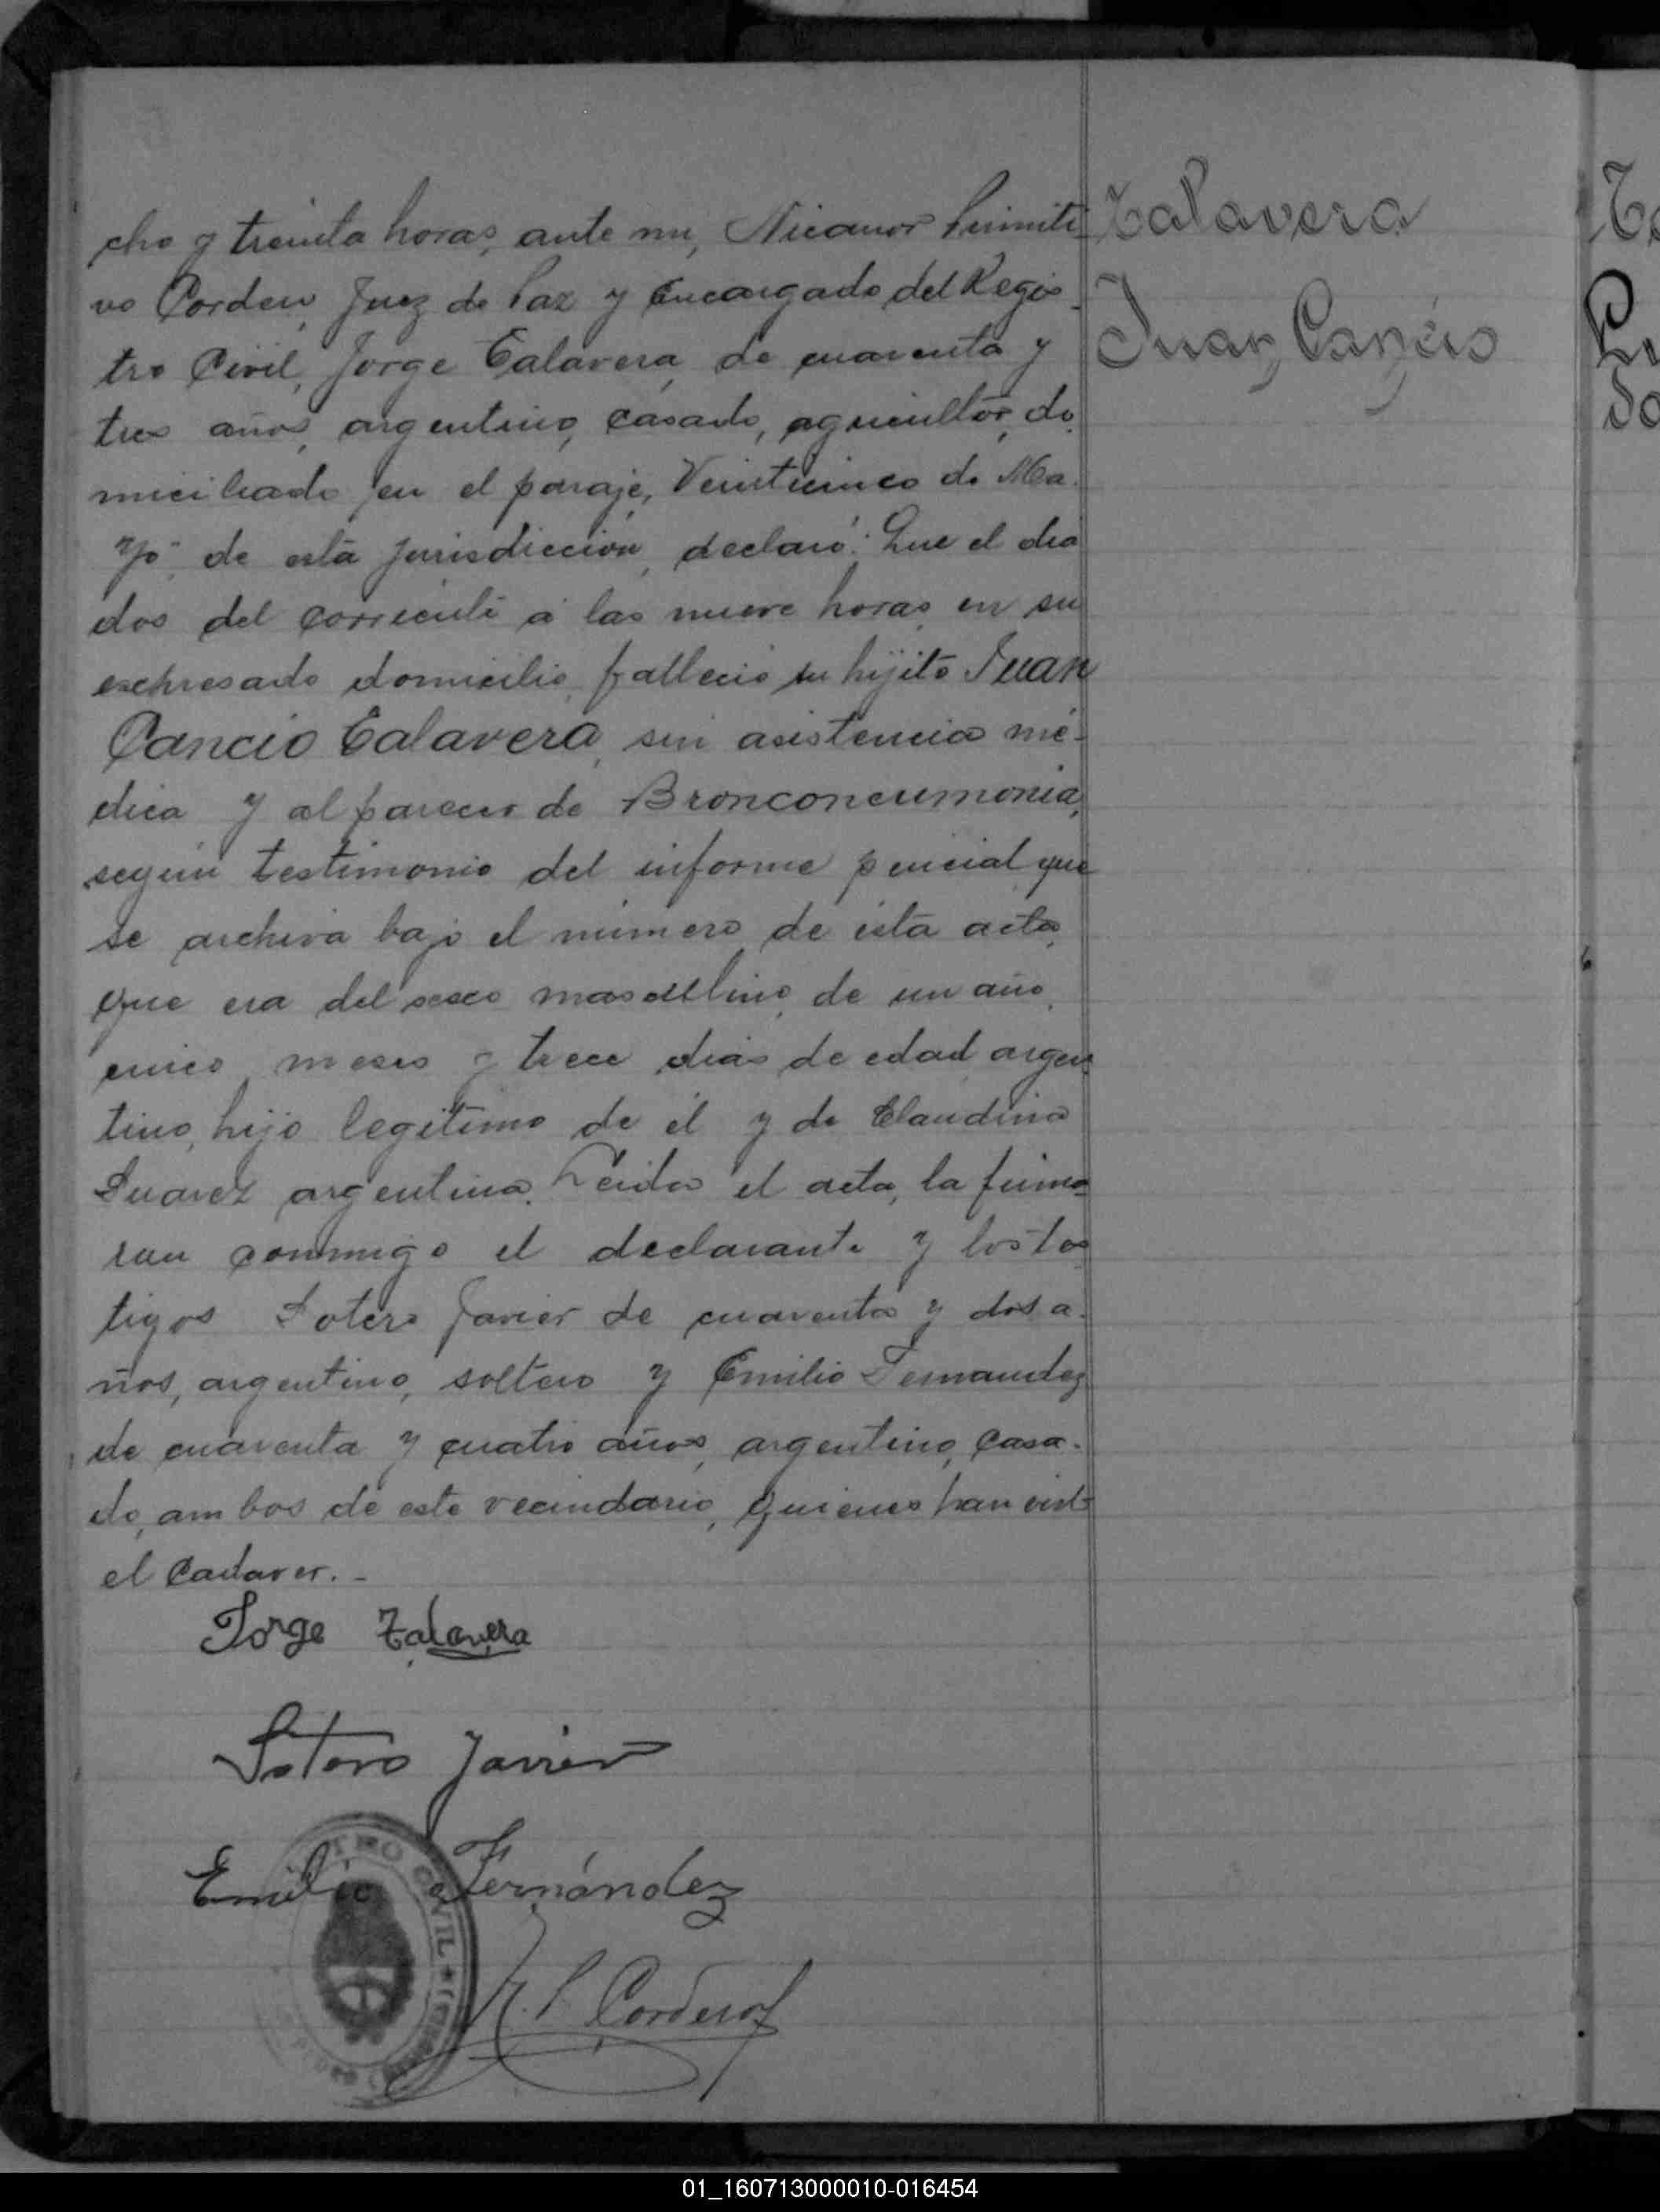 cho y treinta horas, ante mi, Nicanor Primiti-
vo Cordero, Juez de Paz y Encargado del Regis-
tro Civil, Jorge Talavera, de cuarenta y
tres años, argentino, casado, agricultor, do-
miciliado en el paraje, Veinticinco de Ma-
yo", de esta jurisdicción, declaró: Que el dia
dos del corriente á las nueve horas, en su
expresado domicilio, falleció su hijito Juan
Cancio Talavera, sin asistencia mé-
dica y al parecer de Bronconeumonia,
según testimonio del informe pericial que
se archiva bajo el número de esta acta,
que era del sexo masculino, de un año,
cinco meses y trece dias de edad, argen-
tino, hijo legitimo de él y de Claudina
Suarez argentina. Leida el acta, la firma-
ran conmigo el declarante y los tes-
tigos Sotero Javier de cuarenta y dos a-
ños, argentino, soltero y Emilio Fernandez
de cuarenta y cuatro años, argentino, casa-
do, ambos de este vecindario, quienes han visto
el cadaver.-
Jorge Talavera
Sotero Javier
Emilio Fernández
N. P. Cordero
CIVIL
Talavera
Juan Cancio
01_160713000010-016454